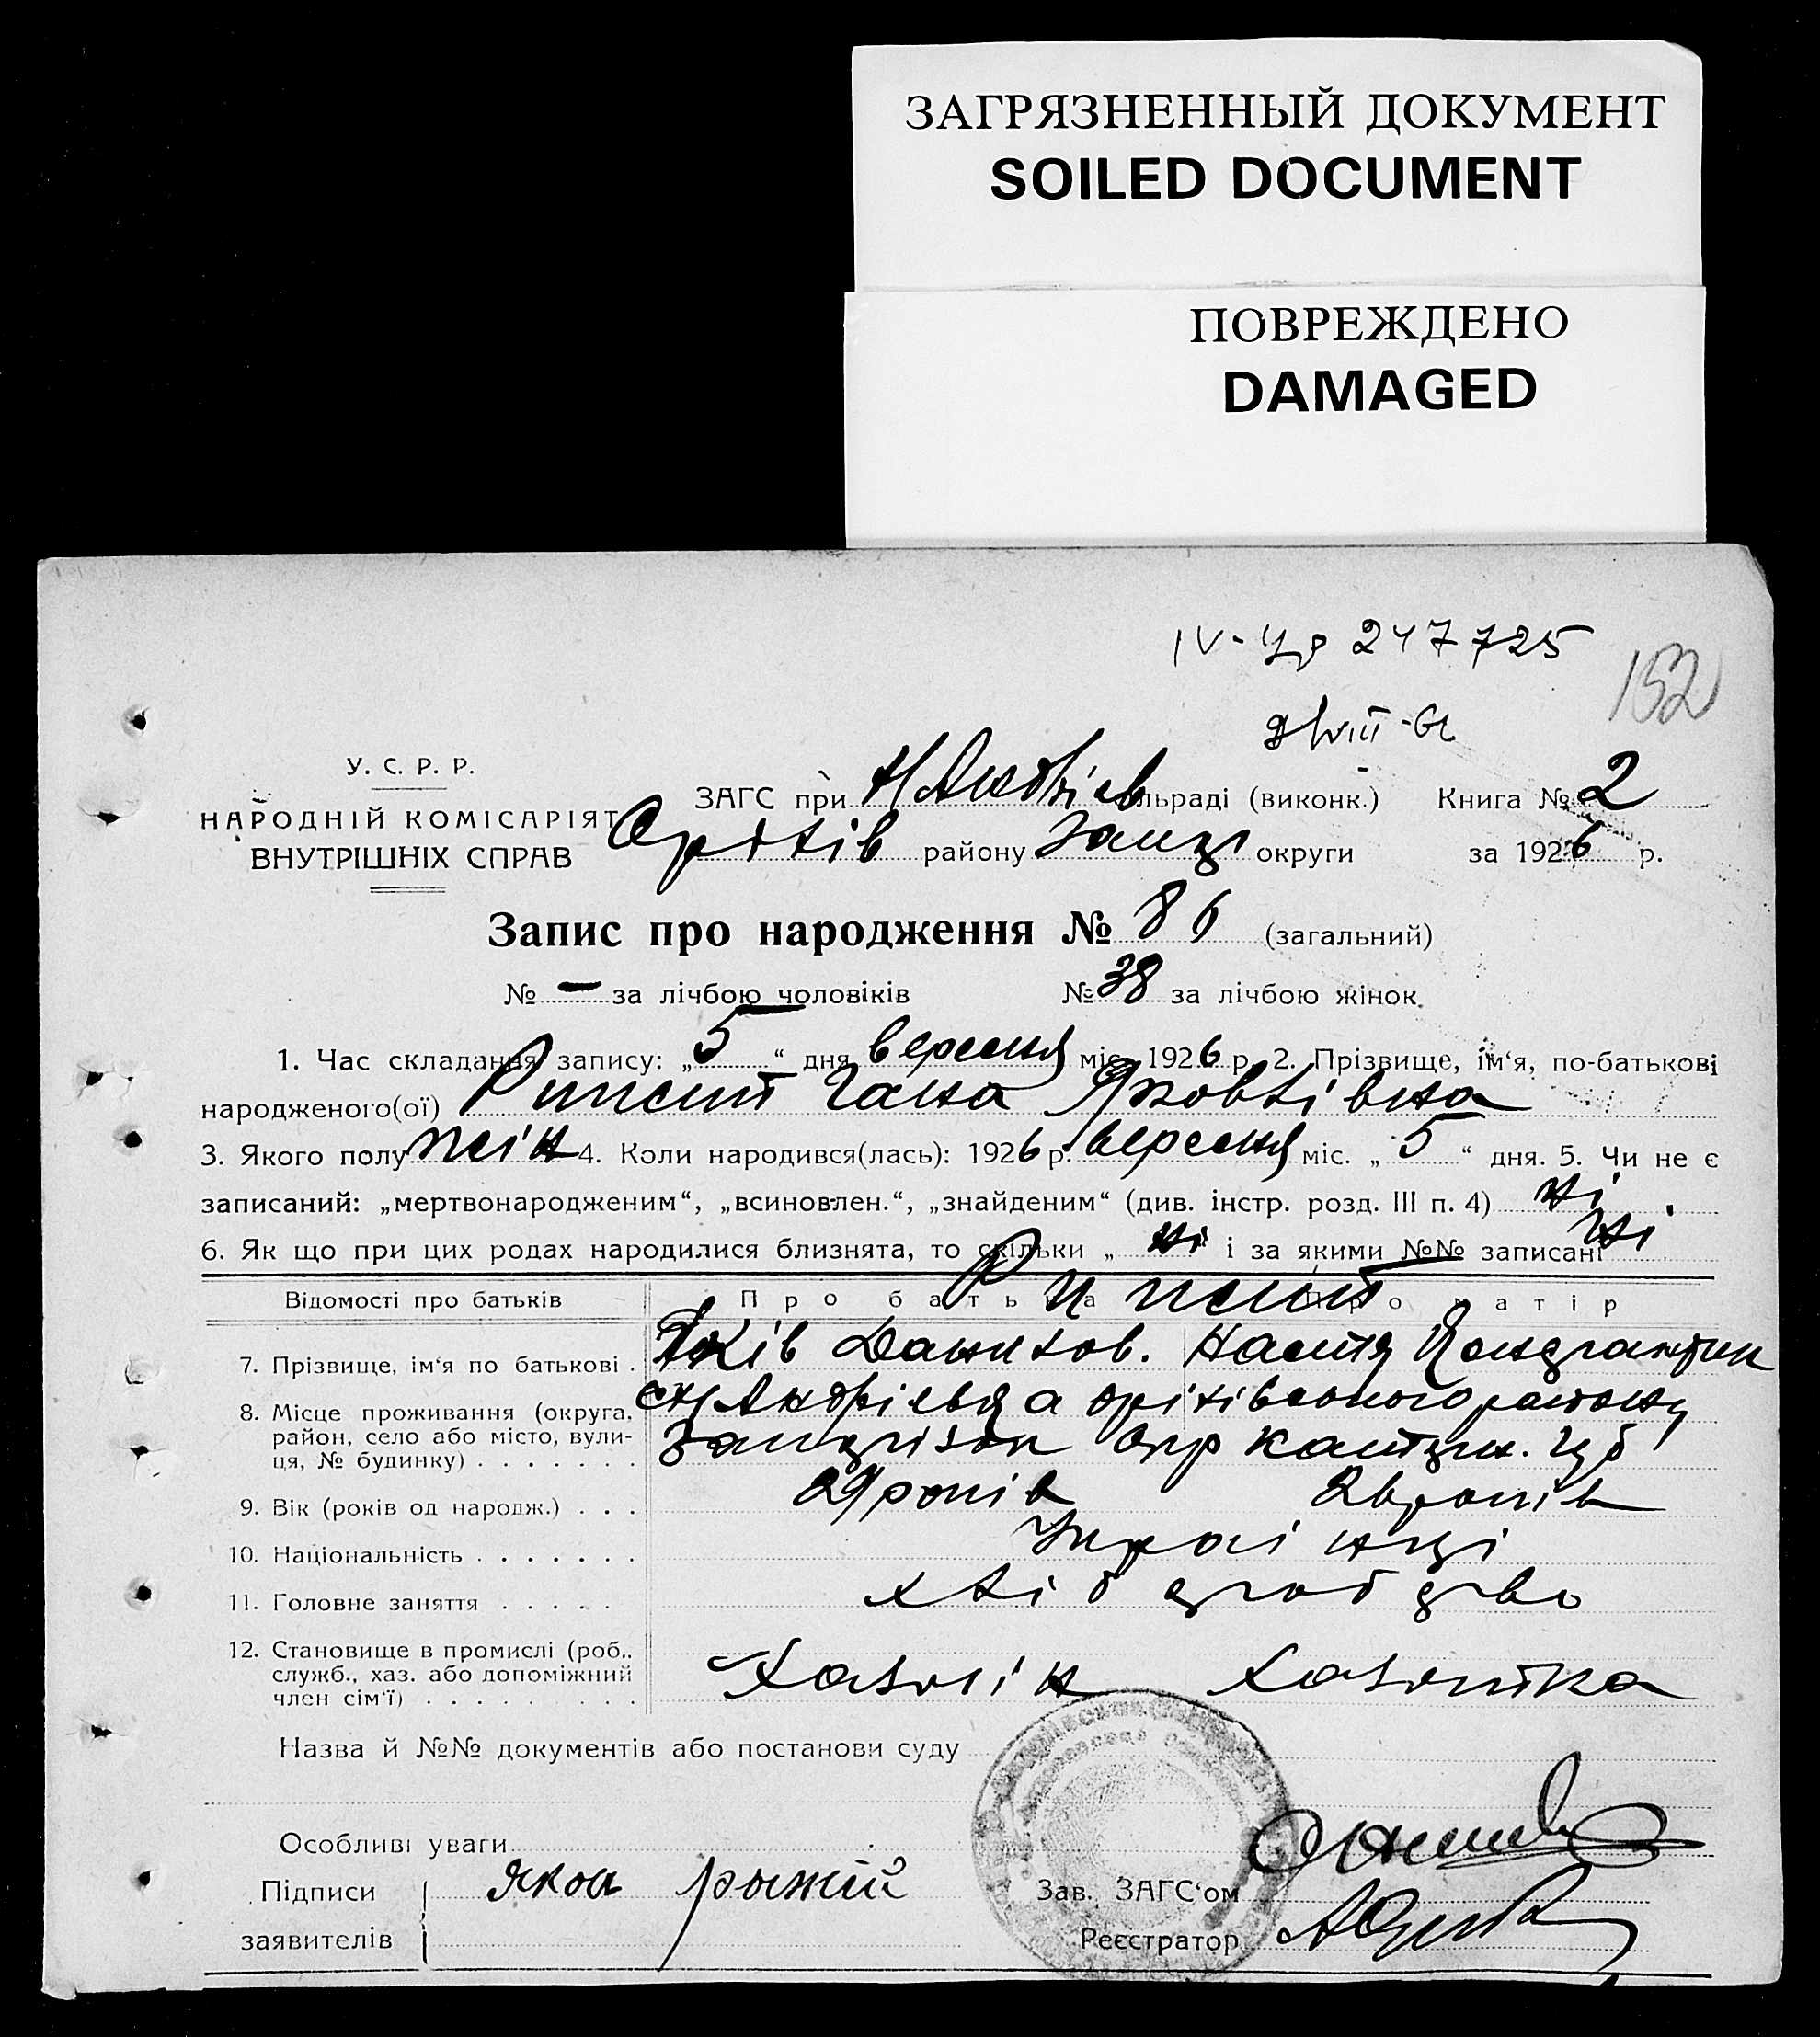 ЗАГРЯЗНЕННЫЙ ДОКУМЕНТ
SOILED DOCUMENT
ПОВРЕЖДЕНО
DAMAGED
247725
152
У. С. Р. Р.
НАРОДНІЙ КОМІСАРІЯТ
ВНУТРІШНІХ СПРАВ
ЗАГС при Н Андріїв льраді (виконк.) Книга № 2
Оріхів району Запор округи за 1926 р.
Запис про народження № 86 (загальний)
№ – за лічбою чоловіків № 38 за лічбою жінок.
1. Час складання запису: „5“ дня вересня міс. 1926 р. 2. Прізвище, ім‘я, по-батькові
народженого(ої) Гана Яковлівна
3. Якого полу жін 4. Коли народився(лась): 1926 р. вересня міс. „5“ дня. 5. Чи не є
записаний: „мертвонародженим“, „всиновлен.“, „знайденим“ (див. інстр. розд. III п. 4) ні
6. Як що при цих родах народилися близнята, то скільки „ні“ і за якими №№ записані ні
Відомості про батьків Про батька Про матір
7. Прізвище, ім‘я по батькові . Яків Данилов. Настя
8. Місце проживання (округа, район, село або місто, вулиця, № будинку) . . . . . . . с Н Андріївка Оріхівського району
9. Вік (років од народж.) . . . 29 років 26 років
10. Національність . . . . . . . Українці
11. Головне заняття . . . . . хліборобство
12. Становище в промислі (роб., служб., хаз. або допоміжний член сім‘ї) . . . . . . . . . Хазяїн Хазяйка
Назва й №№ документів або постанови суду
Особливі уваги
Підписи Яков рыжий Зав. ЗАГС‘ом
заявителів Реєстратор